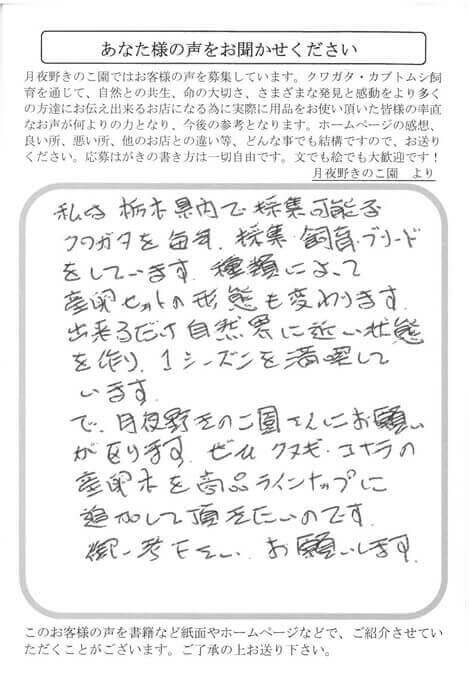 あなた様の声をお聞かせください
月夜野きのこ園ではお客様の声を募集しています。クワガタ・カブトムシ飼
育を通じて、自然との共生、命の大切さ、さまざまな発見と感動をより多く
の方達にお伝え出来るお店になる為に実際に用品をお使い頂いた皆様の率直
なお声が何よりの力となり、今後の参考となります。ホームページの感想、
良い所、悪い所、他のお店との違い等、どんな事でも結構ですので、お送り
ください。応募はがきの書き方は一切自由です。文でも絵でも大歓迎です！
月夜野きのこ園　より
私は 栃木県内で採集可能な
クワガタを毎年、採集・飼育・ブリード
をしています。種類によって
産卵セットの形態も変わります。
出来るだけ自然界に近い状態
を作り、1シーズンを満喫して
います。
で、月夜野きのこ園さんにお願い
が有ります。ぜひクヌギ・コナラの
産卵木を商品ラインナップに
追加して頂きたいのです。
御一考下さい。お願いします。
このお客様の声を書籍など紙面やホームページなどで、ご紹介させてい
ただくことがございます。ご了承の上お送り下さい。